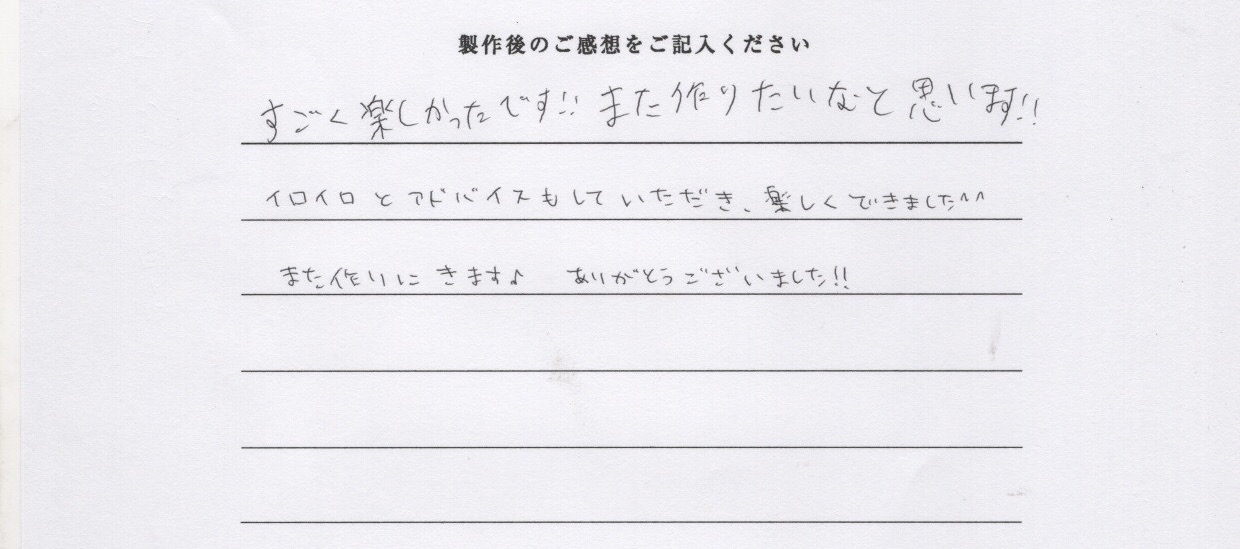 製作後のご感想をご記入ください
すごく楽しかったです!! また作りたいなと思います!!
イロイロとアドバイスもしていただき、楽しくできました^^
また作りにきます♪ ありがとうございました!!